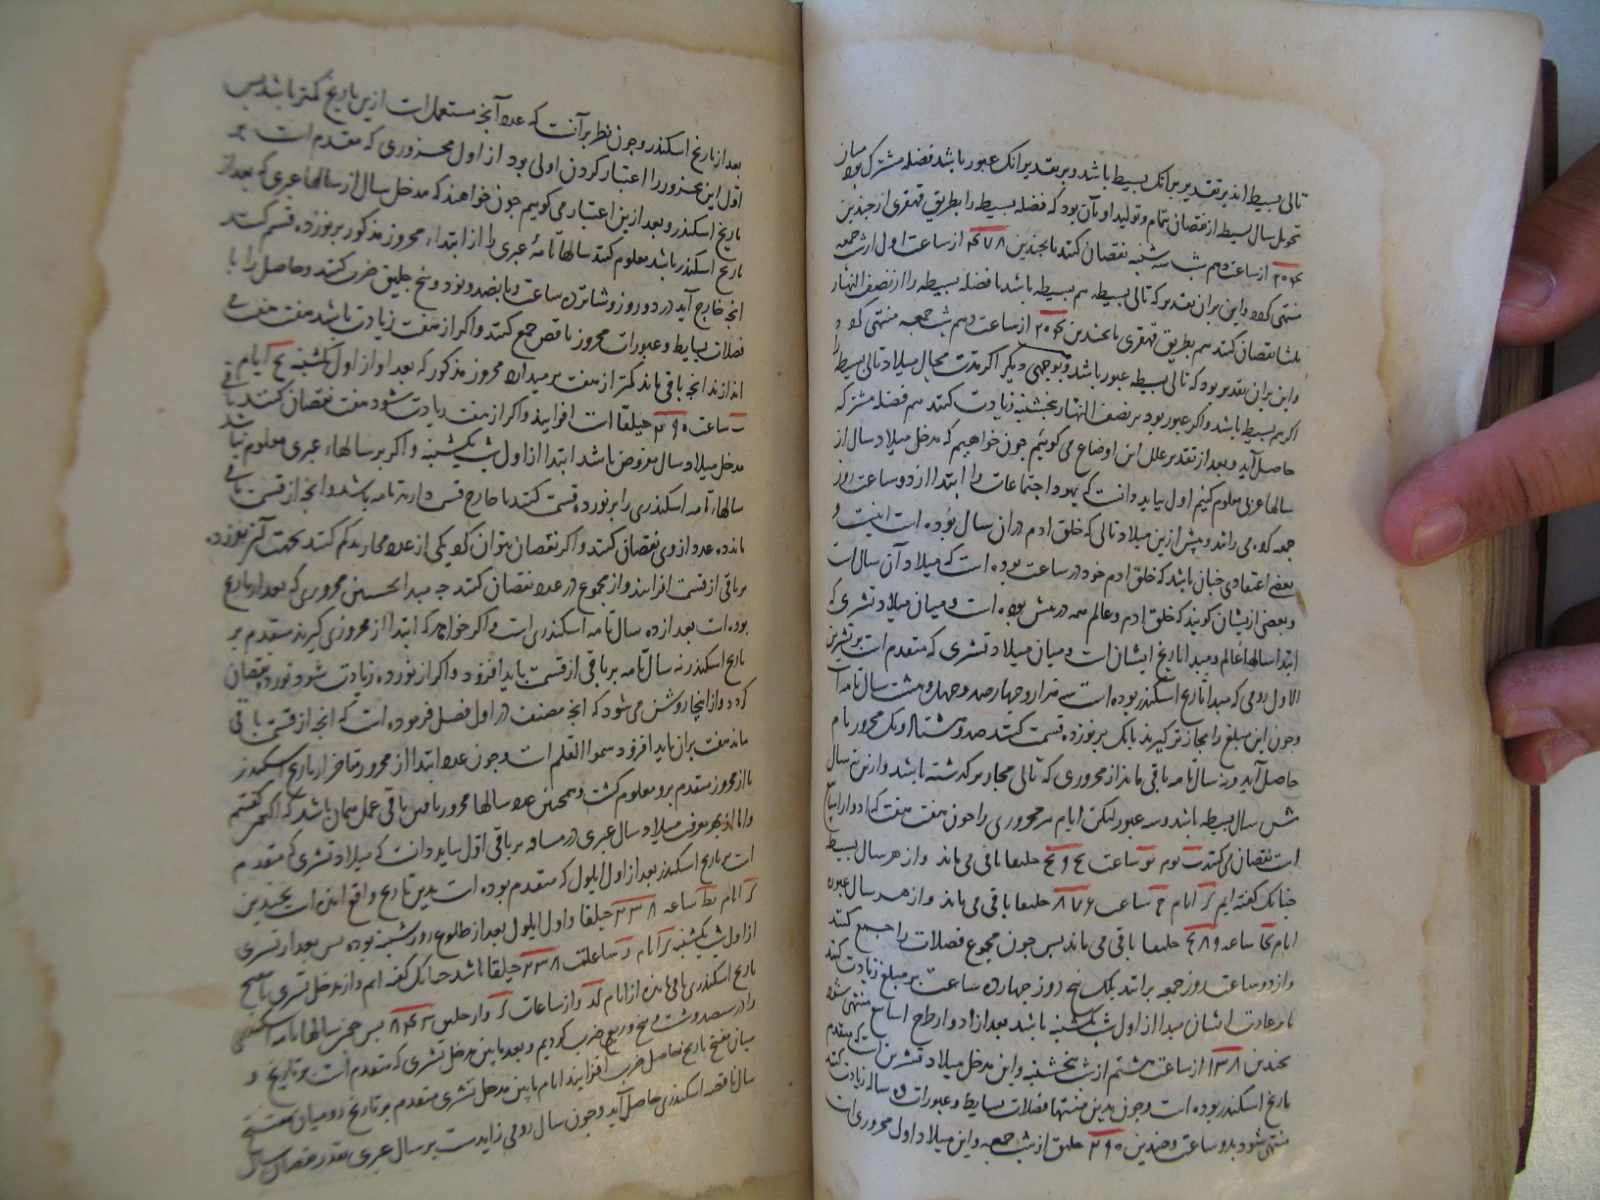 تالی بسیط اند بر تقدیر بر انک بسیط باشد و بر تقدیر انک عبور باشد فضله مشترک بود میان
تحویل سال بسیط از نقصان تمام و تولید او بآن بود که فضله بسیط را بطریق قهقری از چندین
۲۰۴ از ساعت دهم شب سه شنبه نقصان کنند تا بچندین از ساعت اول از شب جمعه
منتهی کردد و این بران تقدیر که تالی بسیطه هم بسیطه باشد یا فضله بسیطه را از نصف النهار
نقصان کنند هم بطریق قهقری تا بچندین ۲۰۴ از ساعت دهم شب جمعه منتهی کردد
و این بران تقدیر بود که تالی بسیطه عبور باشد و بوجهی دیگر اکر مدت محال میلاد تالی بسیطه را
اکر هم بسیط باشد و اکر عبور بود بر نصف النهار پنجشنبه زیادت کنند هم فضله مشترکه
حاصل آید و بعد از تقدیر علل این اوضاع می کوییم چون خواهیم که مدخل میلاد سال از
سالها عبری معلوم کنیم اول بباید دانست که یهود اجتماعات را ابتدا از دو ساعت روز
جمعه کرده می رانند و پیش ازین میلاد تالی که خلق ادم دران سال بوده است اینست و
بعضی اعتقادی چنان باشد که خلق ادم خود در ساعت بوده است که میلاد آن سال است
و بعضی ازیشان کویند که خلق ادم و عالم همه در نیسن بوده است و میان میلاد تشری که
ابتدا سالها عالم و مبدا تاریخ ایشان است و میان میلاد تشری که متقدم است بر تشرین
الاول رومی که مبدا تاریخ اسکندر بوده است سه هزار و چهار صد و چهل و هشت سال تامه است
و چون این مبلغ را بمجاز ترکیزند بانک بر نوزده قسمت کنند صد و هشتاد و یک محزور تام
حاصل آید و نه سال تامه باقی ماند از محزوری که تالی محازیر کذشته باشد و ازین نه سال
شش سال بسیطه باشد و سه عبور لیکن ایام هر محزوری را چون هفت هفت که ادوار ایام
است نقصان می کنند یوم ساعت حلیقا باقی می ماند و از هر سال بسیط
چنانک کفته ایم ایام ساعت ۸۷۶ حلیقا باقی می ماند و از هر سال عبور
ایام ساعه حلیقا باقی می ماند پس چون مجموع فضلات را جمع کنند
و از دو ساعت روز جمعه برانند بلک پنج روز چهارده ساعت بر مبلغ زیادت کنند
بر عادت ایشان مبدا از اول شب یکشنبه باشد بعد از ادوار طرح اسابیع منتهی شود
بچندین ۱۳۸ از ساعت هشتم از شب پنجشنبه و این مدخل میلاد تشرین است که متقدم
تاریخ اسکندر بوده است و چون بدین منتها فضلات بسایط و عبورات ده ساله زیادت کنند
منتهی شود بدو ساعت و چندین حلیق از شب جمعه و این میلاد اول محزوری است
بعد از تاریخ اسکندر و چون نظر بر آنست که عدد آنچه مستعمل است ازین تاریخ کمتر باشد پس
اول این محزور را اعتبار کردن اولی بود از اول محزوری که متقدم است بر
تاریخ اسکندر و بعد ازین اعتبار می کوییم چون خواهند که مدخل سال از سالها عبری که بعد از
تاریخ اسکندر باشد معلوم کنند سالها تامهٔ عبری را از ابتداء محزور مذکور بر نوزده قسمت کنند
انچه خارج آید در دو روز و شانزده ساعت و پانصد و نود و پنج حلیق ضرب کنند و حاصل را با
فضلات بسایط و عبورات محزور ناقص جمع کنند و اکر از هفت زیادت باشد هفت هفت می
اندازند انچه باقی ماند کمتر از هفت بر میلاد محزور مذکور که بعد او از اول یکشنبه ایام
ساعت حلیقا است افزایند و اکر از هفت زیادت شود هفت نقصان کنند باقی
مدخل میلاد سال مفروض باشد ابتدا از اول شب یکشنبه و اکر سالهاء عبری معلوم نباشد
سالهاء تامه اسکندری را بر نوزده قسمت کنند تا خارج قسمت دارند تامه باشد و انچه از قسمت باقی
مانده عدد از وی نقصان کنند و اکر نقصان نتوان کرد یکی از عدد محازیر کم کنند بجهت آنک نوزده
بر باقی از قسمت افزایند و از مجموع عدد نقصان کنند چه مبدا نخستین محزوری که بعد از تاریخ
بوده است بعد از ده سال تامه اسکندری است و اکر خواهند که ابتدا از محزوزی کیرند متقدم بر
تاریخ اسکندر نه سال تامه بر باقی از قسمت باید افزود و اکر از نوزده زیادت شود نوزده نقصان
کرد و از اینجا روشن می شود که انچه مصنف در اول فصل فرموده است که انچه از قسمت باقی
ماند هفت بران باید افزود سهو القلم است و چون عدد ابتدا از محزور متاخر از تاریخ اسکندر
یا از محزور متقدم برو معلوم کشت و همچنین عدد سالها محزور ناقص باقی عمل همان باشد که کفتیم
و اما معرفت میلاد سال عبری در مسافه بر باقی اول بباید دانست که میلاد تشری که متقدم
است بر تاریخ اسکندر بعد از اول ایلول که متقدم بوده است بدین تاریخ واقع افتاده است بچندین
ایام ساعه ۳۳۸ حلیقا و اول ایلول بعد از طلوع روز شنبه بوده پس بعد از تشری
از اول شب یکشنبه ایام ساعات ۳۳۸ حلیقا باشد چنانک کفته ایم و از مدخل تشری تا فتح
تاریخ اسکندری باقی مانده از ایام و از ساعات و از حلیق پس چون سالها تامه اسکندری
را در سیصد و شصت و پنج و ربع ضرب کردیم و بعد مابین مدخل تشری که متقدم است بر تاریخ و
میان مفتح تاریخ بحاصل ضرب افزایند ایام مابین مدخل تشری متقدم بر تاریخ و میان مفتتح
سال ناقصه اسکندری حاصل آید و چون سال رومی زاید است بر سال عبری بقدر نقصان سال